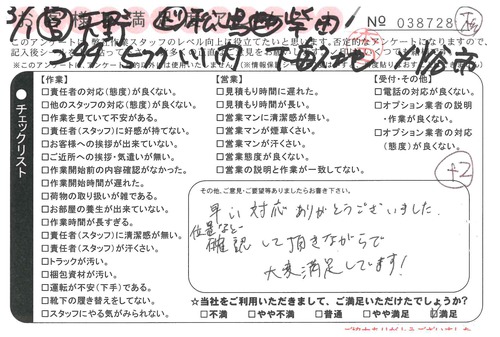 № 038728
このアンケートは
チェックリスト
【作業】
□責任者の対応(態度)が良くない。
□他のスタッフの対応(態度)が良くない。
□作業を見ていて不安がある。
□責任者(スタッフ)に好感が持てない。
□お客様への挨拶が出来ていない。
□ご近所への挨拶・気遣いが無い。
□作業開始前の内容確認がなかった。
□作業開始時間が遅れた。
□荷物の取り扱いが雑である。
□お部屋の養生が出来ていない。
□作業時間が長すぎる。
□責任者(スタッフ)に清潔感が無い。
□責任者(スタッフ)が汗くさい。
□トラックが汚い。
□梱包資材が汚い。
□運転が不安(下手)である。
□靴下の履き替えをしてない。
□スタッフにやる気がみられない。
【営業】
□見積もり時間に遅れた。
□見積もり時間が長い。
□営業マンに清潔感が無い。
□営業マンが煙草くさい。
□営業マンが汗くさい。
□営業態度が良くない。
□営業の説明と作業が一致してない。
【受付・その他】
□電話の対応が良くない。
□オプション業者の説明
・作業が良くない。
□オプション業者の対応
(態度)が良くない。
+2
その他、ご意見・ご要望等ありましたらお書き下さい。
早い対応ありがとうございました。
位置など
確認して頂きながらで
大変満足しています!
☆当社をご利用いただきまして、ご満足いただけたでしょうか?
□不満 □やや不満 □普通 □やや満足 ☑満足
ご協力ありがとうございました